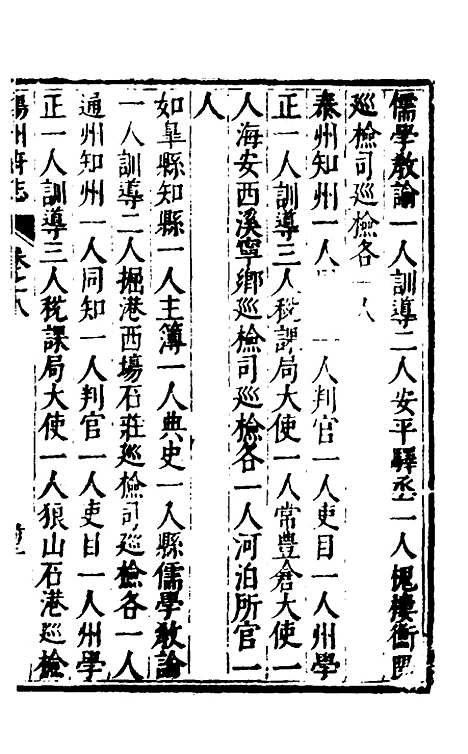 儒學教諭一人訓導二人安平驛丞一人槐樓衡
巡檢司巡檢各一人
泰州知州一人 一人判官一人吏目一人州學
正一人訓導三人稅課局大使一人常豐倉大使一
人海安西溪寧鄉巡檢司巡檢各一人河泊所官一
人
如皐縣知縣一人主簿一人典史一人縣儒學教諭
一人訓導二人掘港西場石莊巡檢司巡檢各一人
通州知州一人同知一人判官一人吏目一人州學
正一人訓導三人稅課局大使一人狼山石港巡檢
揚州府志 卷之八